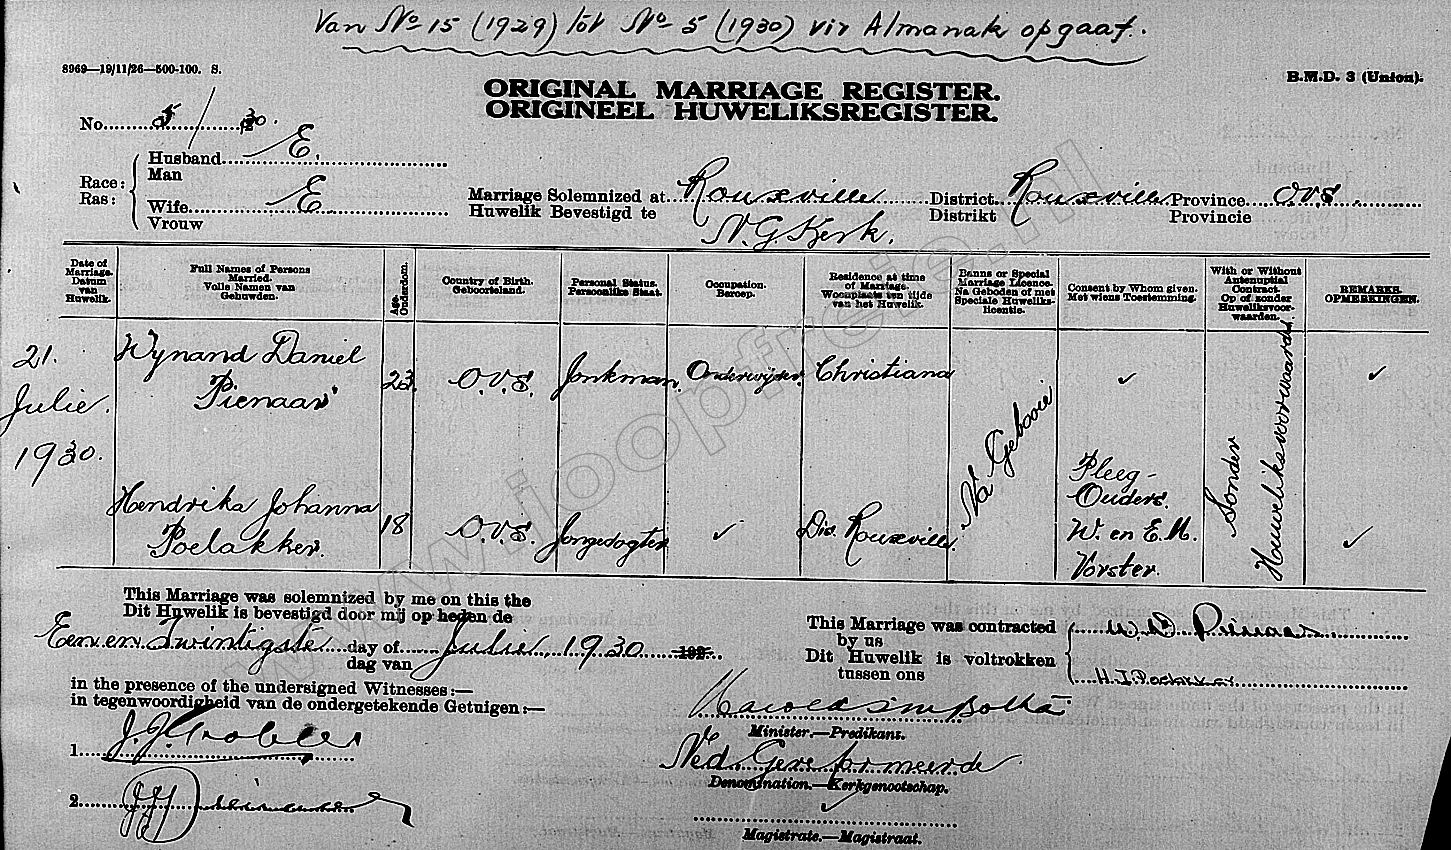 Van No 15 (1929) tot No 5 (1930) vir Almanak opgaaf.
8969—19/11/26—500-100. S.
B.M.D. 3 (Union).
ORIGINAL MARRIAGE REGISTER.
ORIGINEEL HUWELIKSREGISTER.
No. 5/30.
Race: Ras:
Husband E.
Man
Wife E
Vrouw
Marriage Solemnized at Rouxville District Rouxville Province O.V.S.
Huwelik Bevestigd te N.G. Kerk. Distrikt Provincie
Date of Marriage. Datum van Huwelik.
Full Names of Persons Married. Volle Namen van Gehuwden.
Age. Ouderdom.
Country of Birth. Geboorteland.
Personal Status. Persoonlike Staat.
Occupation. Beroep.
Residence at time of Marriage. Woonplaats ten tijde van het Huwelik.
Banns or Special Marriage Licence. Na Geboden of met Speciale Huweliks-licentie.
Consent by Whom given. Met wiens Toestemming.
With or Without Antenuptial Contract. Op of zonder Huweliksvoor-waarden.
REMARKS. OPMERKINGEN.
21. Julie. 1930.
Wynand Daniel Pienaar
23.
O.V.S.
Jonkman.
Onderwyser.
Christiana
Hendrika Johanna Poelakker.
18
O.V.S.
Jongedogter
Dis. Rouxville.
Na Gebooie
Pleeg-Ouders. W. en E.M. Vorster.
Sonder Houweliksvoorwaardes
This Marriage was solemnized by me on this the
Dit Huwelik is bevestigd door mij op heden de
Een en Twintigste day of Julie 1930 192
dag van
in the presence of the undersigned Witnesses:—
in tegenwoordigheid van de ondergetekende Getuigen:—
1. J.J. Grobler
2.
This Marriage was contracted by us
Dit Huwelik is voltrokken tussen ons
W D Pienaar
H.J. Poelakker
Botha
Minister.—Predikant.
Ned. Gereformeerde
Denomination.—Kerkgenootschap.
Magistrate.—Magistraat.
www.loopfreide.nl